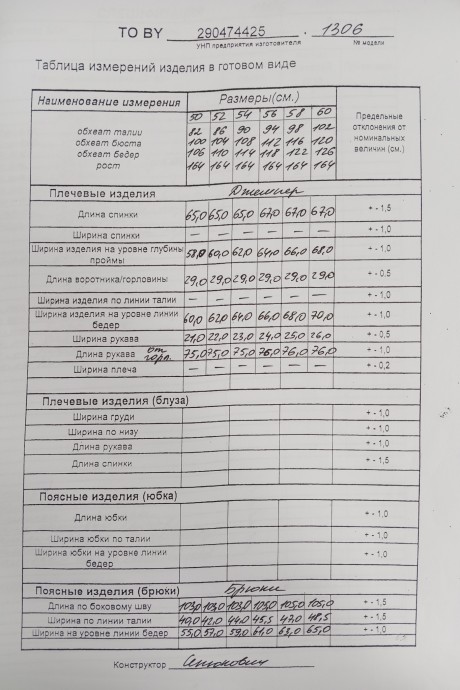 ТО BY 290474425 . 1306
УНП предприятия изготовителя № модели
Таблица измерений изделия в готовом виде
Наименование измерения Размеры(см.) Предельные отклонения от номинальных величин (см.)
50 52 54 56 58 60
обхват талии 82 86 90 94 98 102
обхват бюста 100 104 108 112 116 120
обхват бедер 106 110 114 118 122 126
рост 164 164 164 164 164 164
Плечевые изделия Джемпер
Длина спинки 65,0 65,0 65,0 67,0 67,0 67,0 + - 1,5
Ширина спинки — — — — — — + - 1,0
Ширина изделия на уровне глубины проймы 58,0 60,0 62,0 64,0 66,0 68,0 + - 1,0
Длина воротника/горловины 29,0 29,0 29,0 29,0 29,0 29,0 + - 0,5
Ширина изделия по линии талии — — — — — — + - 1,0
Ширина изделия на уровне линии бедер 60,0 62,0 64,0 66,0 68,0 70,0 + - 1,0
Ширина рукава 21,0 22,0 23,0 24,0 25,0 26,0 + - 0,5
Длина рукава от горл. 75,0 75,0 75,0 76,0 76,0 76,0 + - 1,0
Ширина плеча — — — — — — + - 0,2
Плечевые изделия (блуза)
Ширина груди + - 1,0
Ширина по низу + - 1,0
Длина рукава + - 1,0
Длина спинки + - 1,5
Поясные изделия (юбка)
Длина юбки + - 1,0
Ширина юбки по талии + - 1,0
Ширина юбки на уровне линии бедер + - 1,0
Поясные изделия (брюки) Брюки
Длина по боковому шву 103,0 103,0 103,0 105,0 105,0 105,0 + - 1,5
Ширина по линии талии 40,0 42,0 44,0 45,5 47,0 48,5 + - 1,5
Ширина на уровне линии бедер 55,0 57,0 59,0 61,0 63,0 65,0 + - 1,0
Конструктор